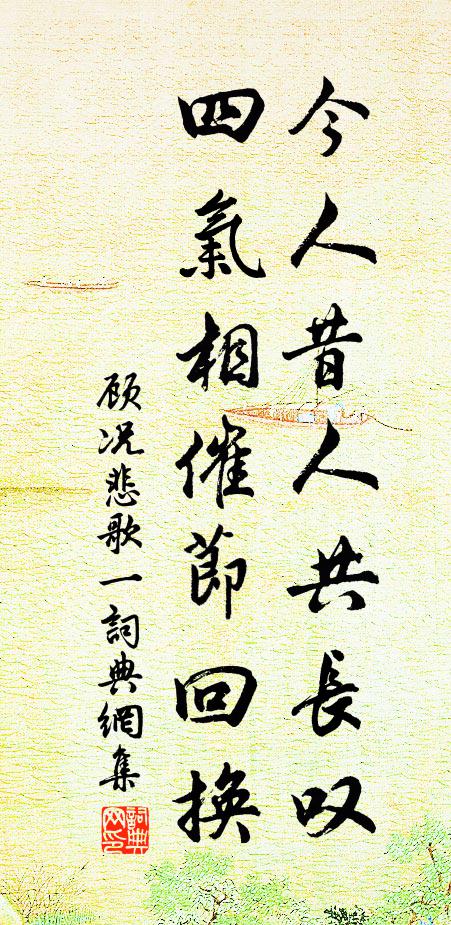 今人昔人共長叹
四氣相催節回换
顾况悲歌一詞典網集
詞典網印